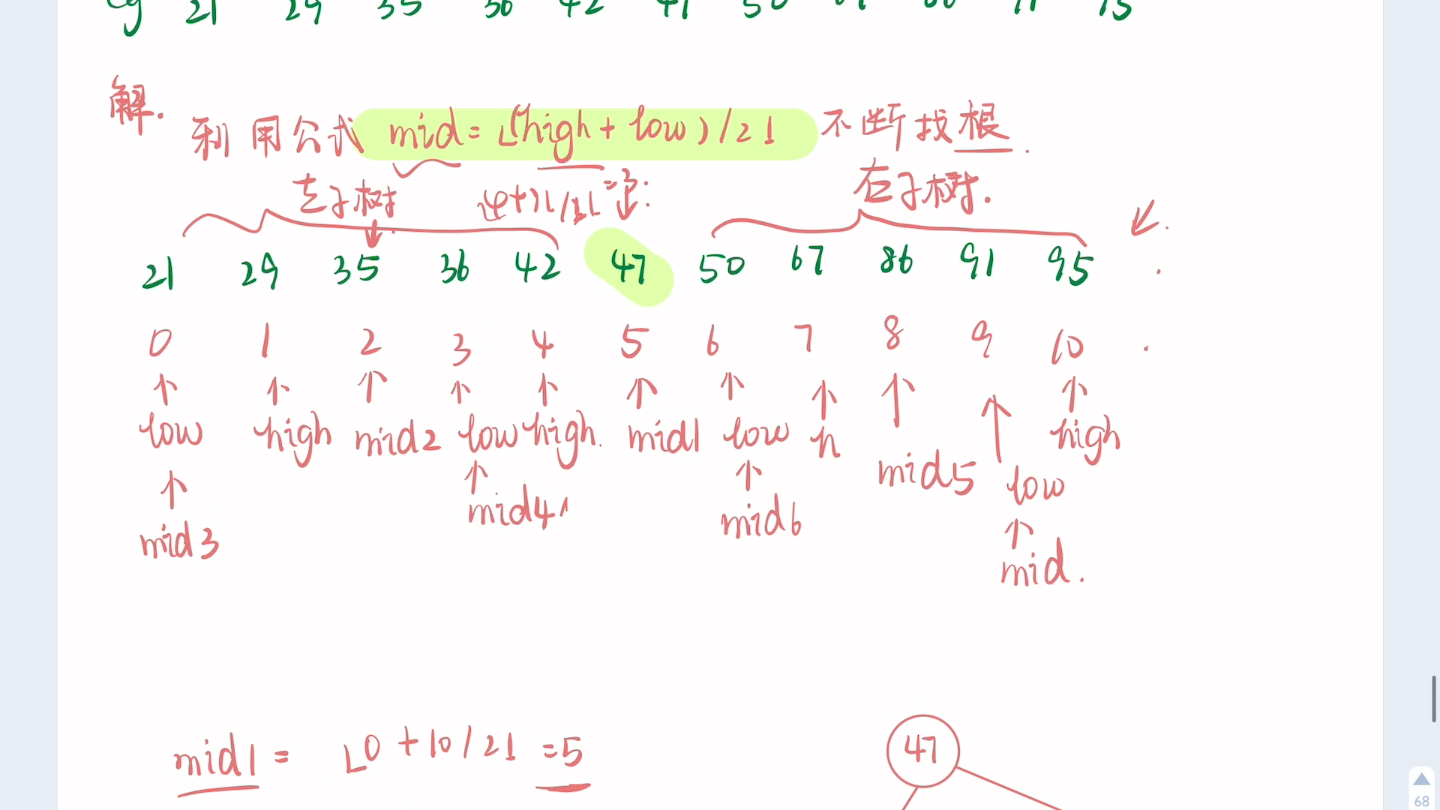 eg 21 29 35 36 42 47 50 67 86 91 95
解.
利用公式 mid = ⌊(high + low)/2⌋ 不断找根.
左子树 右子树.
21 29 35 36 42 47 50 67 86 91 95
0 1 2 3 4 5 6 7 8 9 10
low high mid2 low high. mid1 low h mid5 low high
mid3 mid4 mid6 mid.
mid1 = ⌊0 + 10/2⌋ = 5
47
68